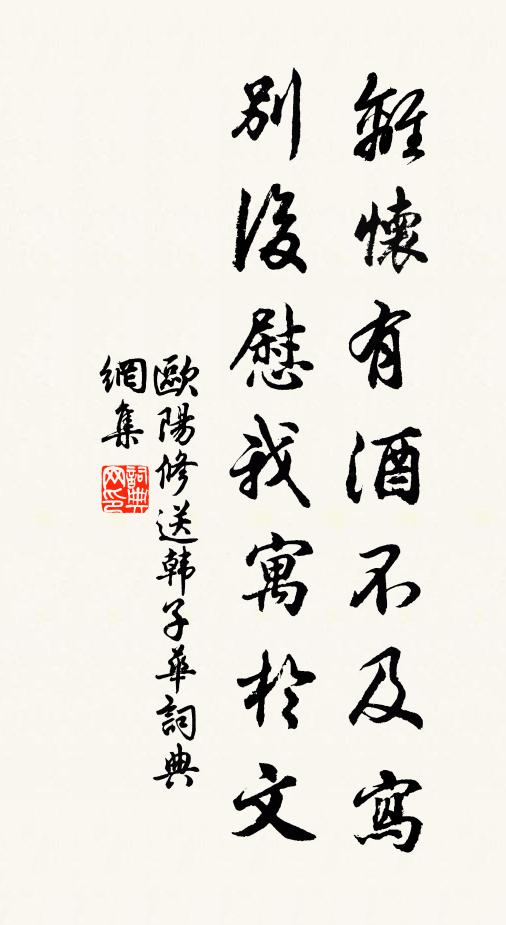 離懷有酒不及寫
別後慰我寓於文
歐陽修送韩子華詞典
網集
詞典
网印